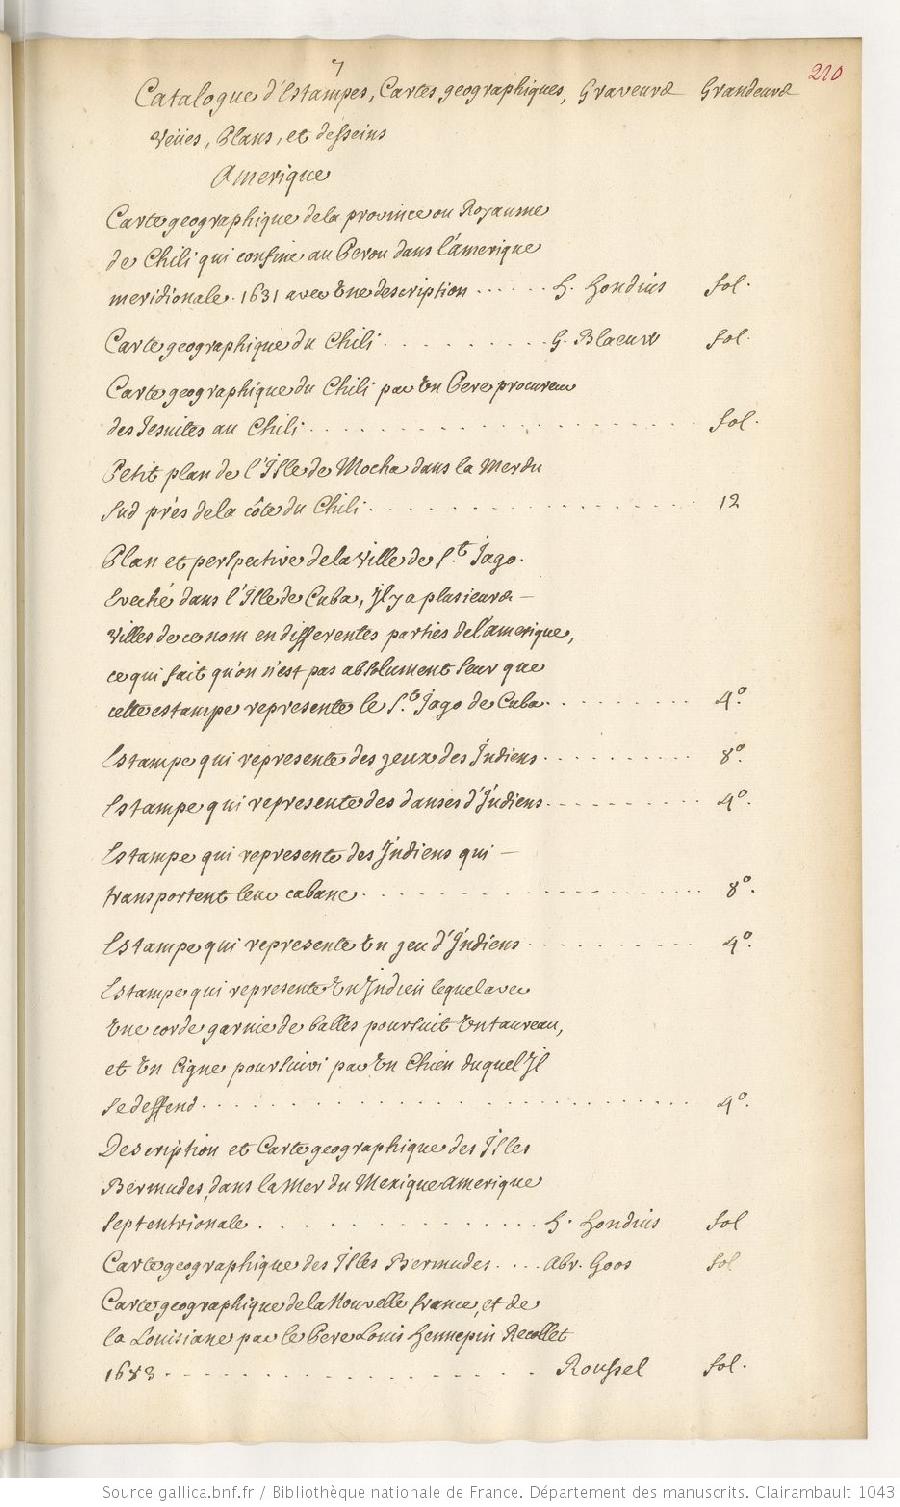 7
210
Catalogue d'Estampes, Cartes geographiques, Graveurs Grandeurs
Veües, Plans, et desseins
Amerique
Carte geographique de la province ou Royaume
de Chili qui confine au Perou dans l'amerique
meridionale. 1631 avec Une description ...... H. Hondius fol.
Carte geographique du Chili .......... G. Blaeuw fol.
Carte geographique du Chili par Un Pere procureur
des Jesuites au Chili .................... fol.
Petit plan de l'Isle de Mocha dans la Mer du
Sud près de la côte du Chili ................. 12
Plan et perspective de la Ville de St. Jago.
Eveché dans l'Isle de Cuba, Il y a plusieurs –
Villes de ce nom en differentes parties de l'amerique,
ce qui fait qu'on n'est pas absolument seur que
cette estampe represente le St. Jago de Cuba ......... 4°.
Estampe qui represente des jeux des Indiens .......... 8°.
Estampe qui represente des danses d'Indiens .......... 4°.
Estampe qui represente des Indiens qui –
transportent leur cabane .................. 8°.
Estampe qui represente Un jeu d'Indiens .......... 4°.
Estampe qui represente Un Indien lequel avec
Une corde garnie de balles poursuit Un taureau,
et Un Cigne poursuivi par Un Chien duquel Il
se deffend ............................ 4°.
Description et Carte geographique des Isles
Bermudes dans la Mer du Mexique Amerique
Septentrionale ................ H. Hondius fol
Carte geographique des Isles Bermudes .... Abr. Goos fol
Carte geographique de la Nouvelle france, et de
la Louisiane par le Pere Louis Hennepin Recollet
1683 ................... Roussel fol.
Source gallica.bnf.fr / Bibliothèque nationale de France. Département des manuscrits. Clairambault 1043